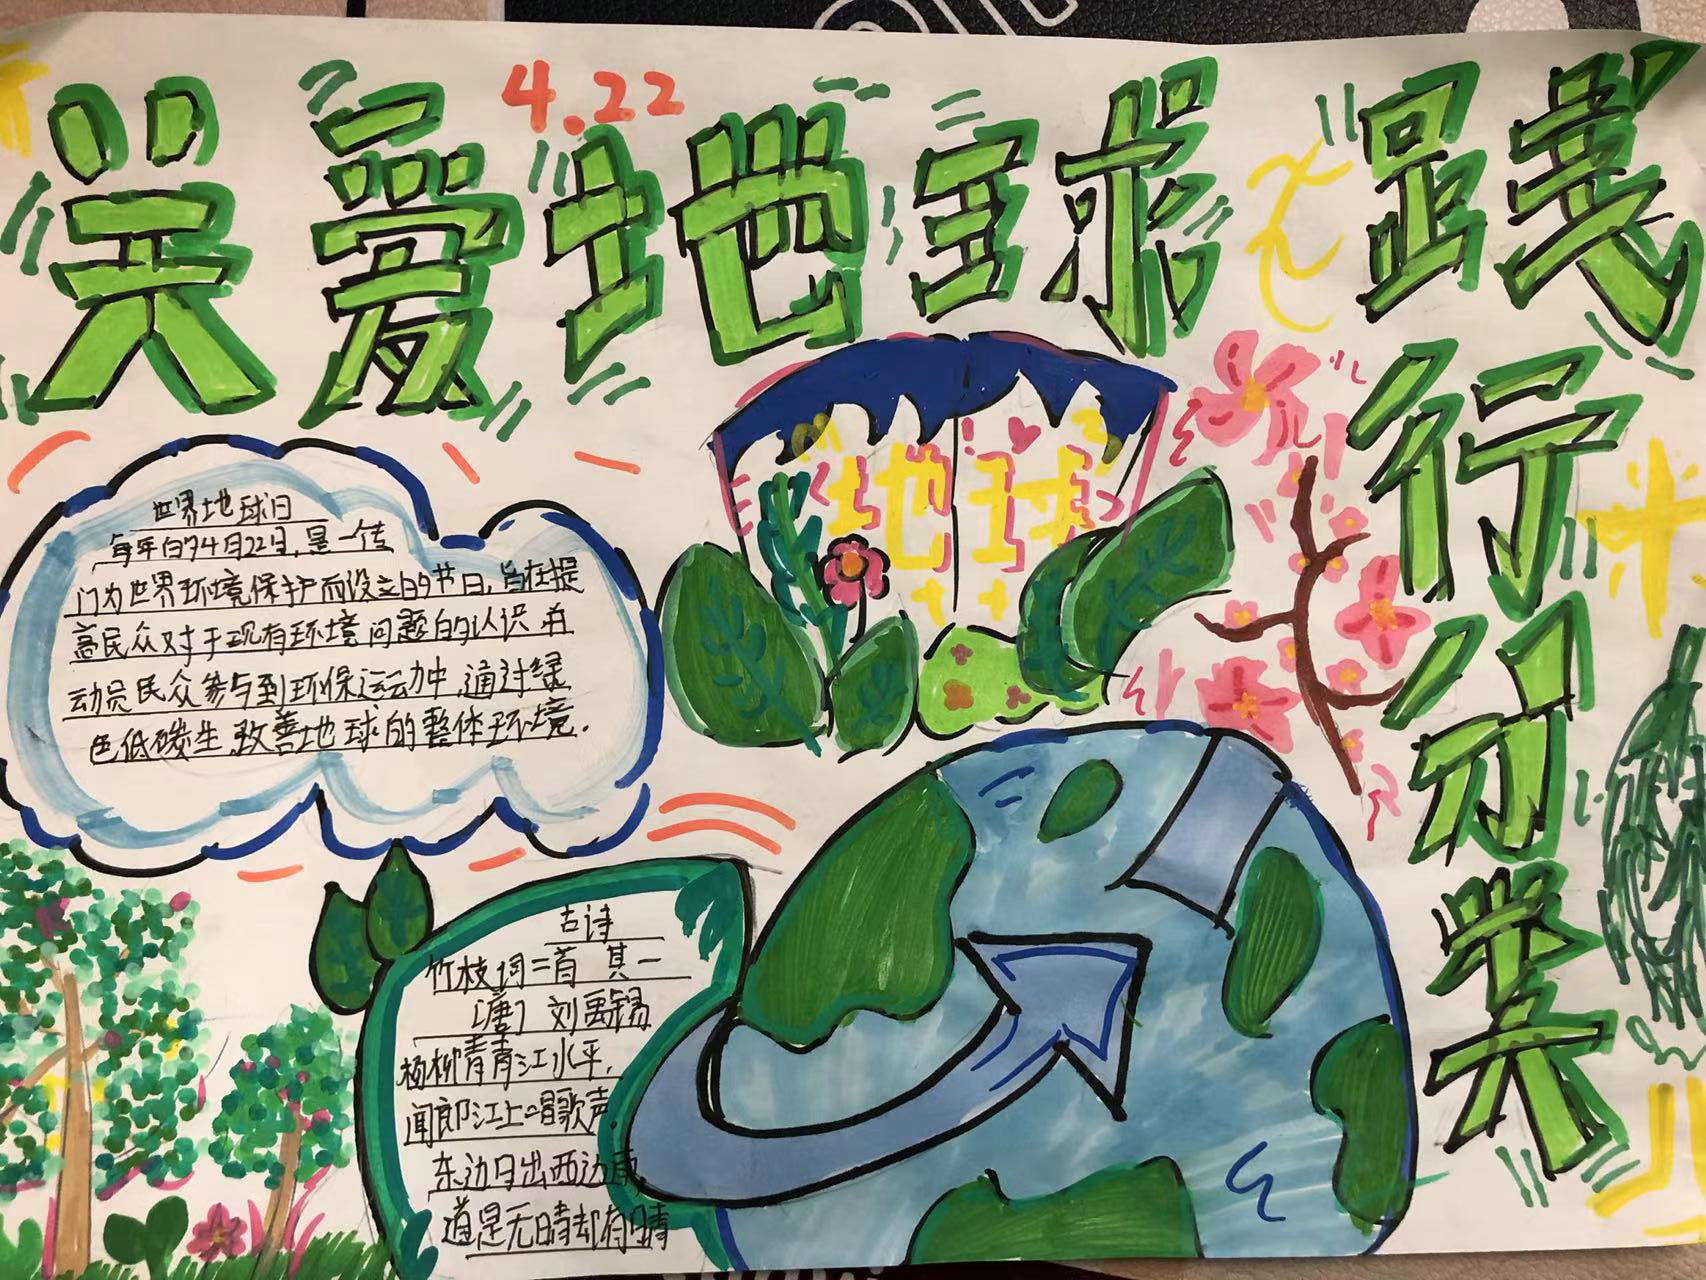 4.22
关爱地球 践
行习奖
世界地球日
每年的4月22日,是一传
门为世界环境保护而设立的节日,旨在提
高民众对于现有环境问题的认识并
动员民众参与到环保运动中,通过绿
色低碳生,改善地球的整体环境.
地球
古诗
竹枝词二首 其一
[唐] 刘禹锡
杨柳青青江水平,
闻郎江上唱歌声.
东边日出西边雨,
道是无晴却有晴